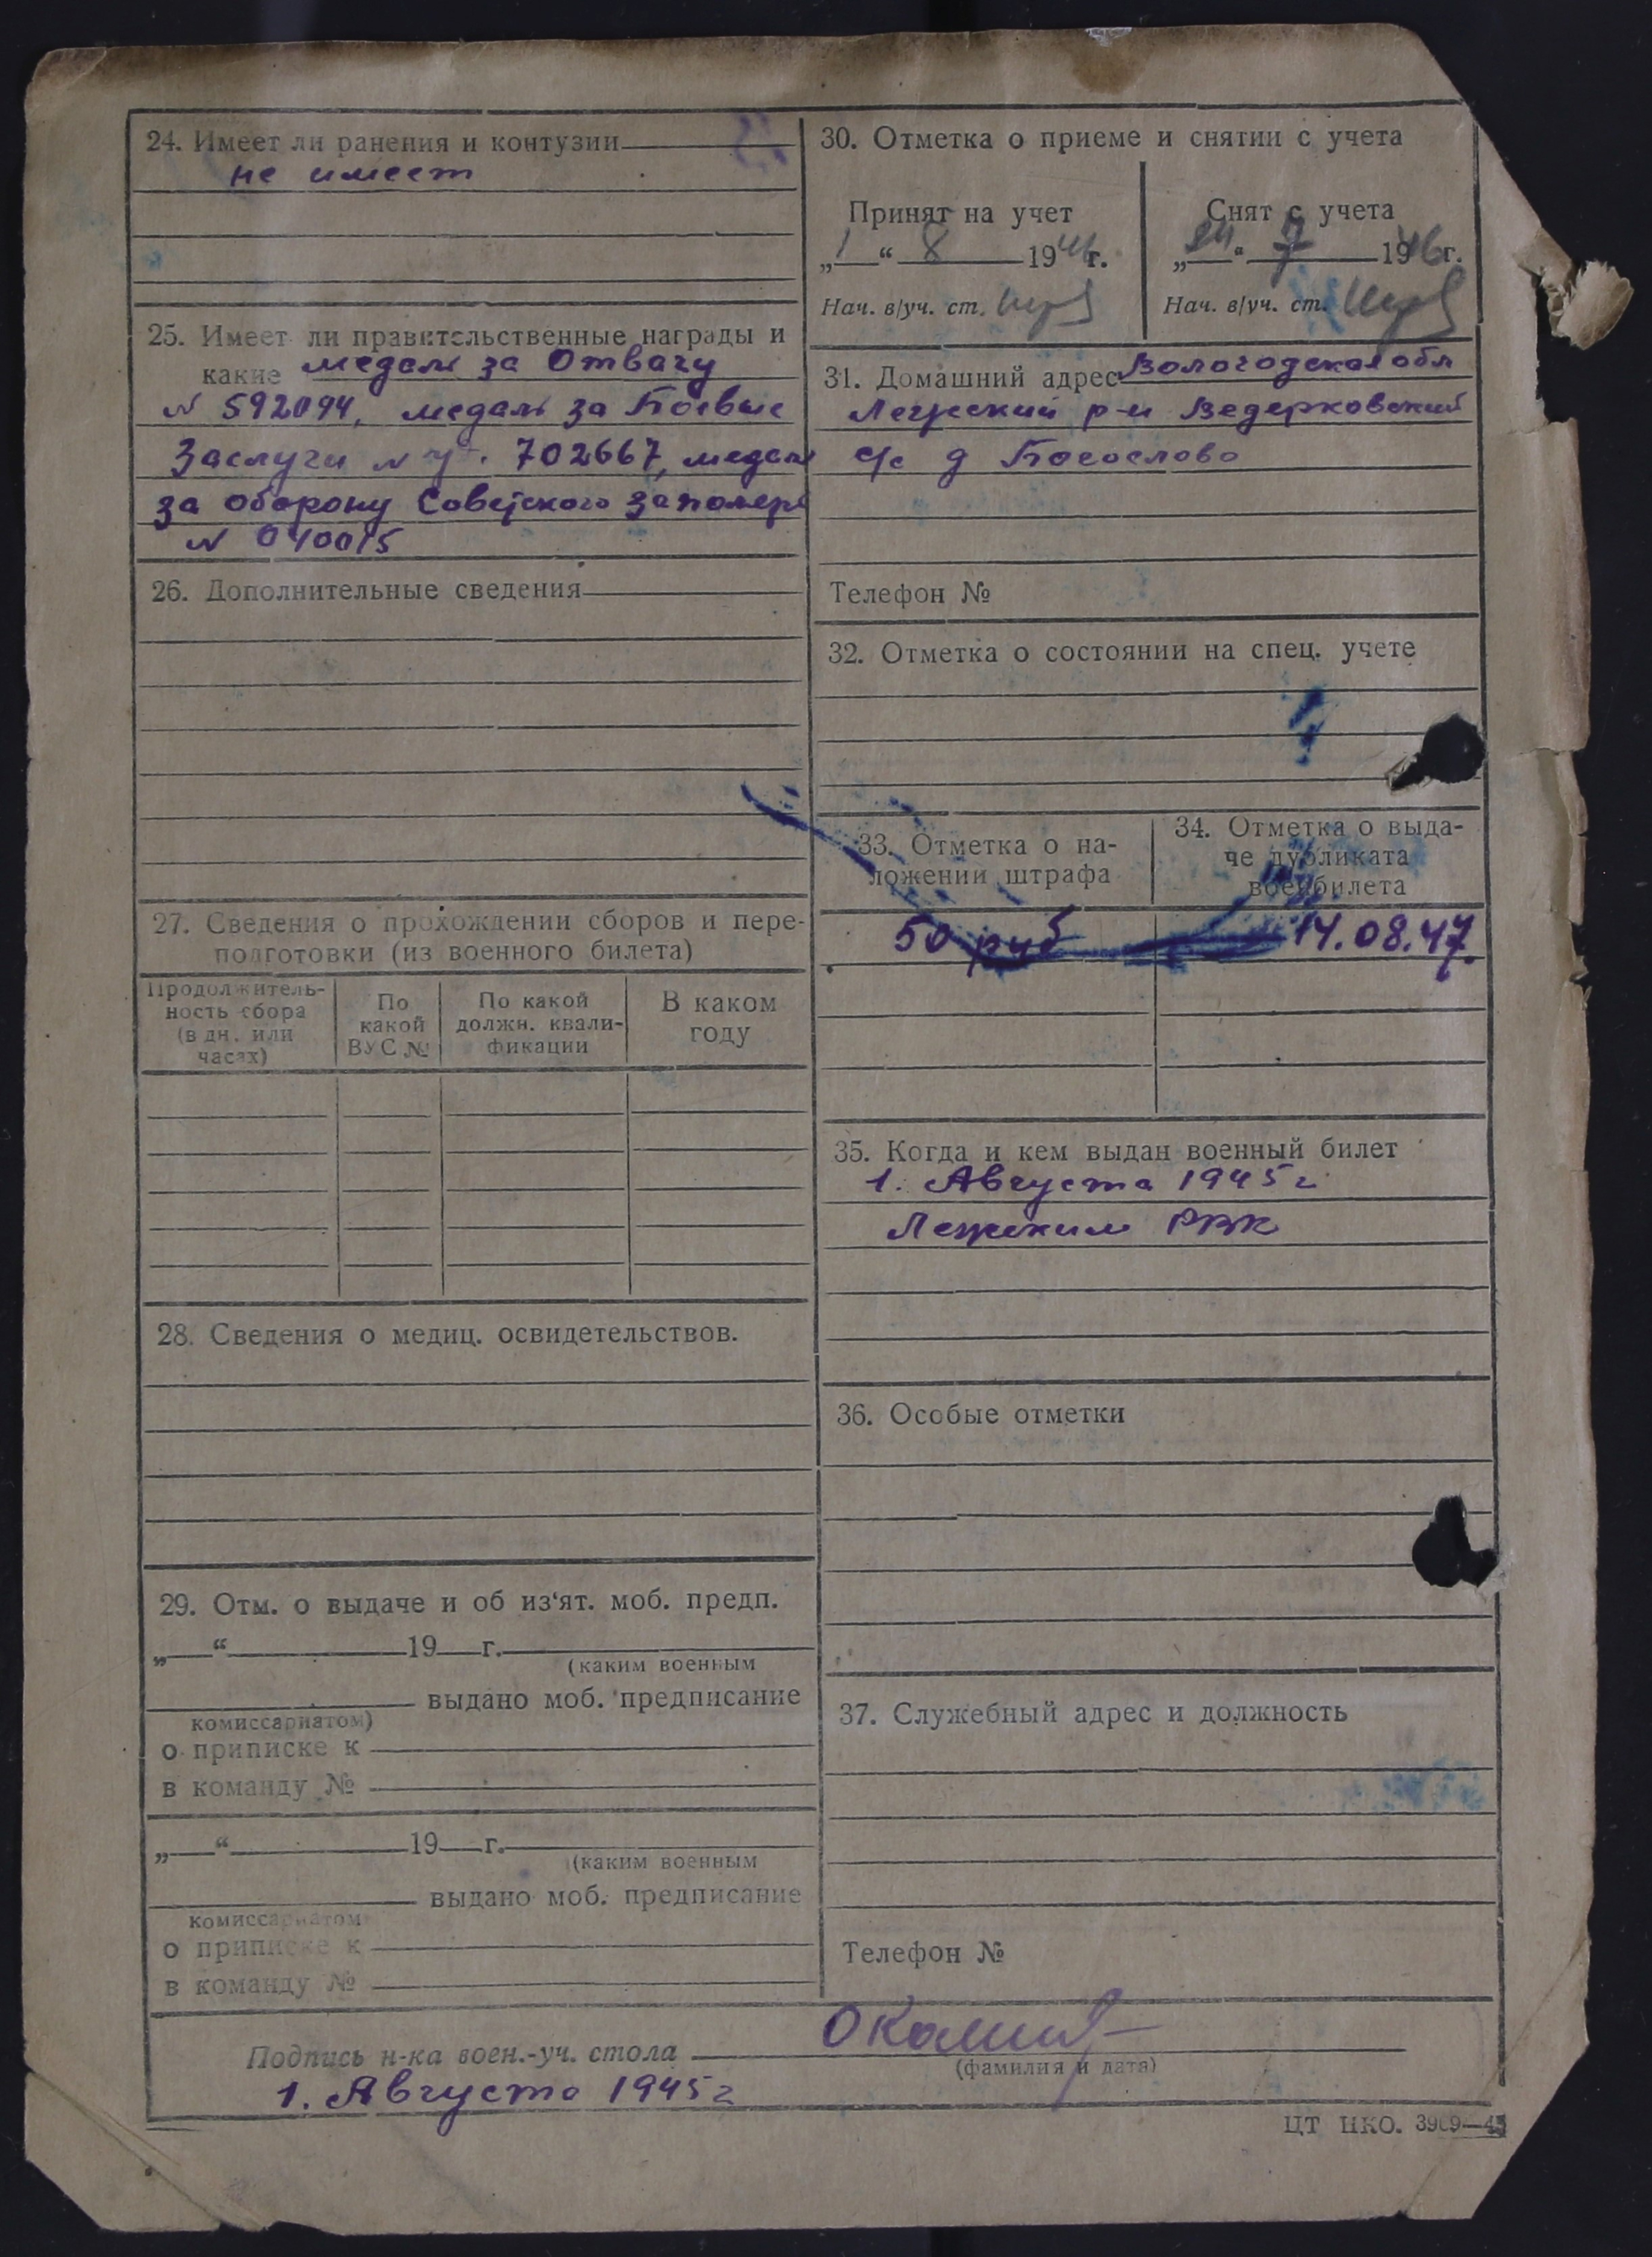 24. Имеет ли ранения и контузии
не имеет
25. Имеет ли правительственные награды и
какие медаль за Отвагу
N 592094, медаль за Боевые
Заслуги N 702667, медаль
за оборону Советского заполяр
N 040015
26. Дополнительные сведения
27. Сведения о прохождении сборов и пере-
подготовки (из военного билета)
Продолжитель-
ность сбора
(в дн. или
часах)
По
какой
ВУС №
По какой
должн. квали-
фикации
В каком
году
28. Сведения о медиц. освидетельствов.
29. Отм. о выдаче и об из‘ят. моб. предп.
„ “ 19 г.
(каким военным
выдано моб. предписание
комиссариатом)
о приписке к
в команду №
„ “ 19 г.
(каким военным
выдано моб. предписание
комиссариатом
о приписке к
в команду №
30. Отметка о приеме и снятии с учета
Принят на учет
„1“ 8 194 г.
Нач. в/уч. ст.
Снят с учета
„ “ 7 1946г.
Нач. в/уч. ст.
31. Домашний адрес Вологодская обл
Лежский р-н Ведерковский
с/с д Богослово
Телефон №
32. Отметка о состоянии на спец. учете
33. Отметка о на-
ложении штрафа
50 руб
34. Отметка о выда-
че дубликата
воен билета
14.08.47.
35. Когда и кем выдан военный билет
1. Августа 1945 г.
Лежским РВК
36. Особые отметки
37. Служебный адрес и должность
Телефон №
Подпись н-ка воен.-уч. стола
(фамилия и дата)
1. Августа 1945 г
ЦТ НКО. 3909—45